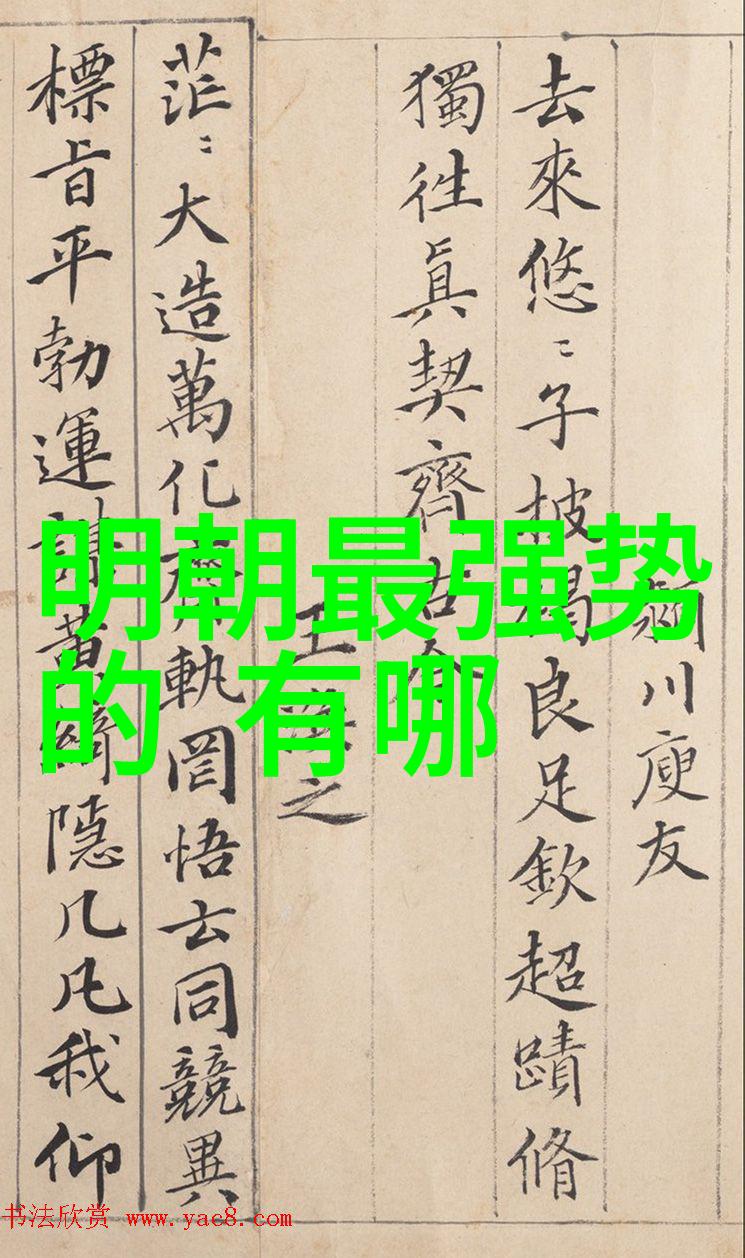 川庾友
去來悠〻子披良足欽超蹟脩
獨徃眞契齊古
王之
茫〻大造萬化軌罔悟玄同競異
標旨平勃運謀黃綺隱几凡我仰
明朝最强势
的 有哪
书法欣赏 www.yac8.com